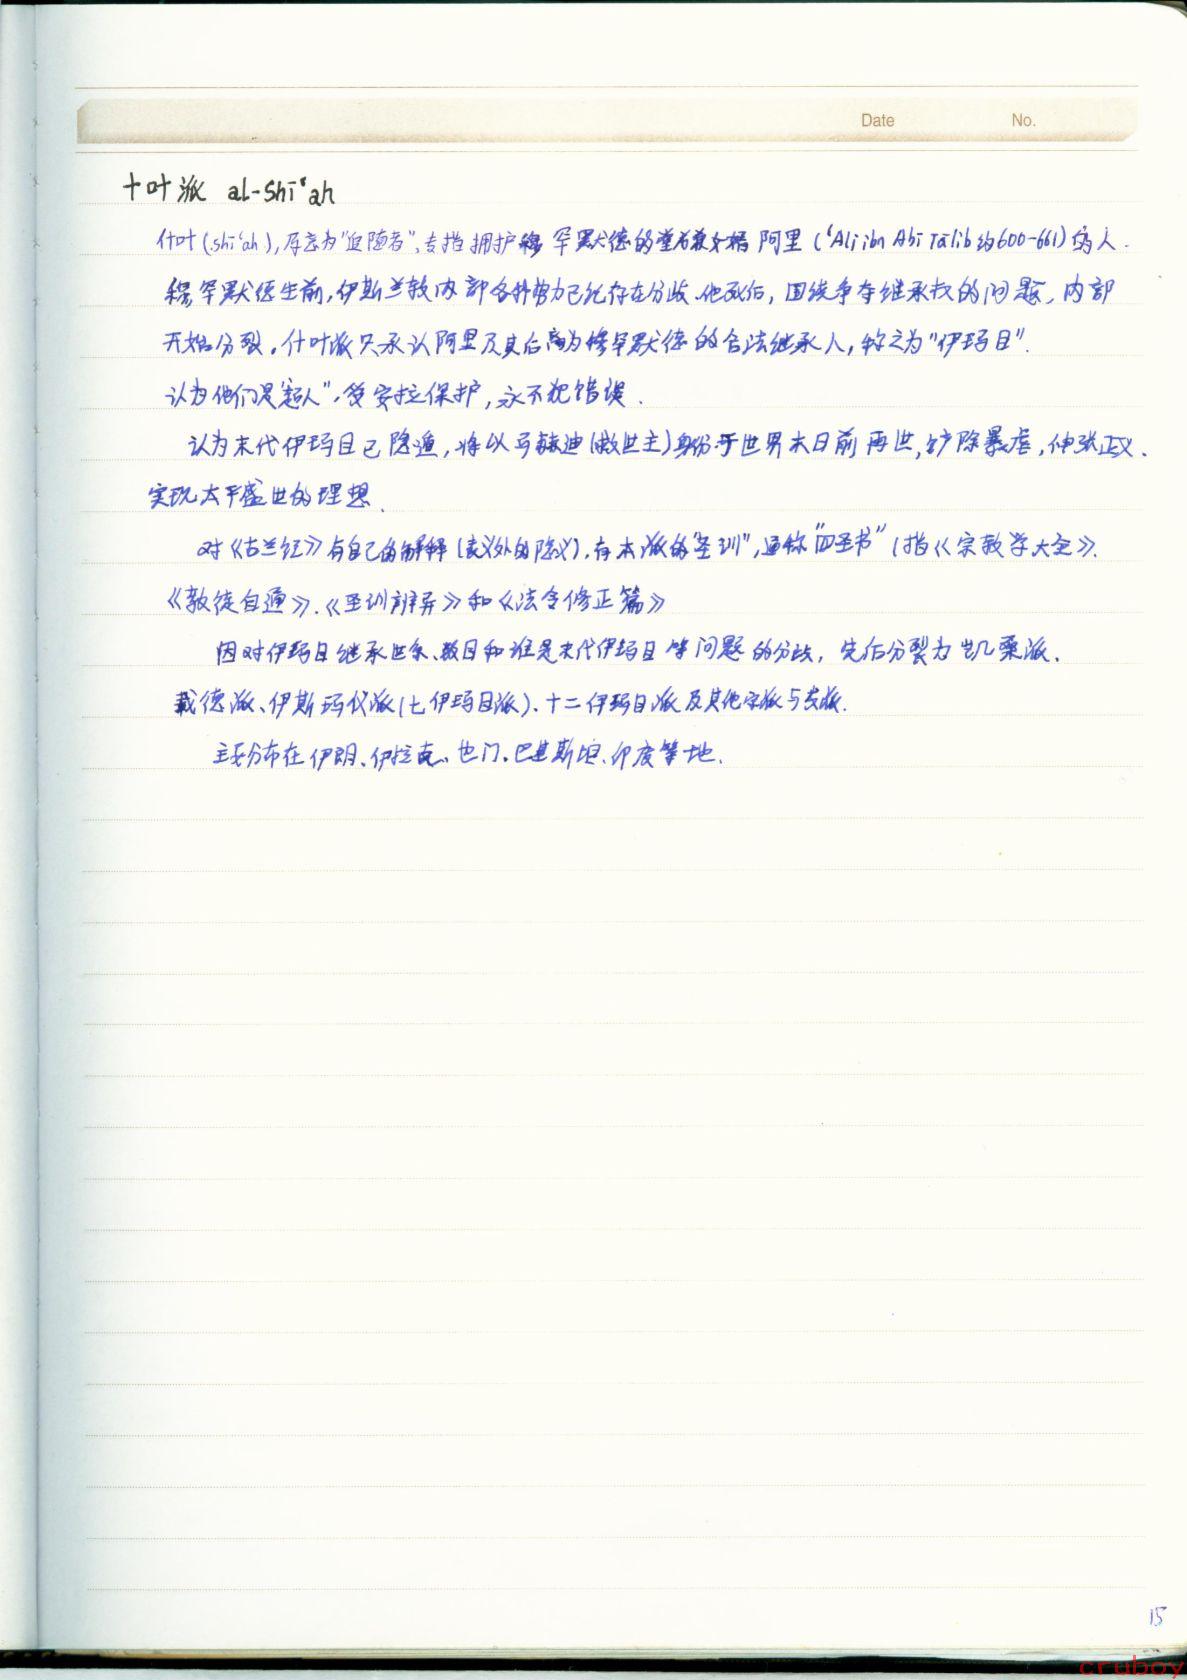 Date No.
十叶派 al-Shī'ah
什叶(shī'ah),原意为"追随者",专指拥护穆罕默德的堂弟兼女婿阿里('Ali ibn Abi Tālib约600-661)的人.
穆罕默德生前,伊斯兰教内部各种势力已经存在分歧.他死后,围绕争夺继承权的问题,内部
开始分裂.什叶派只承认阿里及其后裔为穆罕默德的合法继承人,称之为"伊玛目".
认为他们是"超人",受安拉保护,永不犯错误.
认为末代伊玛目已隐遁,将以马赫迪(救世主)身份于世界末日前再世,铲除暴虐,伸张正义.
实现太平盛世的理想.
对《古兰经》有自己的解释(表义外的隐义).有本派的"圣训",通称"四圣书"(指《宗教学大全》.
《教徒自通》.《圣训辨异》和《法令修正篇》
因对伊玛目继承世系、数目和谁是末代伊玛目等问题的分歧,先后分裂为凯桑派.
栽德派、伊斯玛仪派(七伊玛目派).十二伊玛目派及其他宗派与支派.
主要分布在伊朗.伊拉克.也门.巴基斯坦.印度等地.
15
cruboy